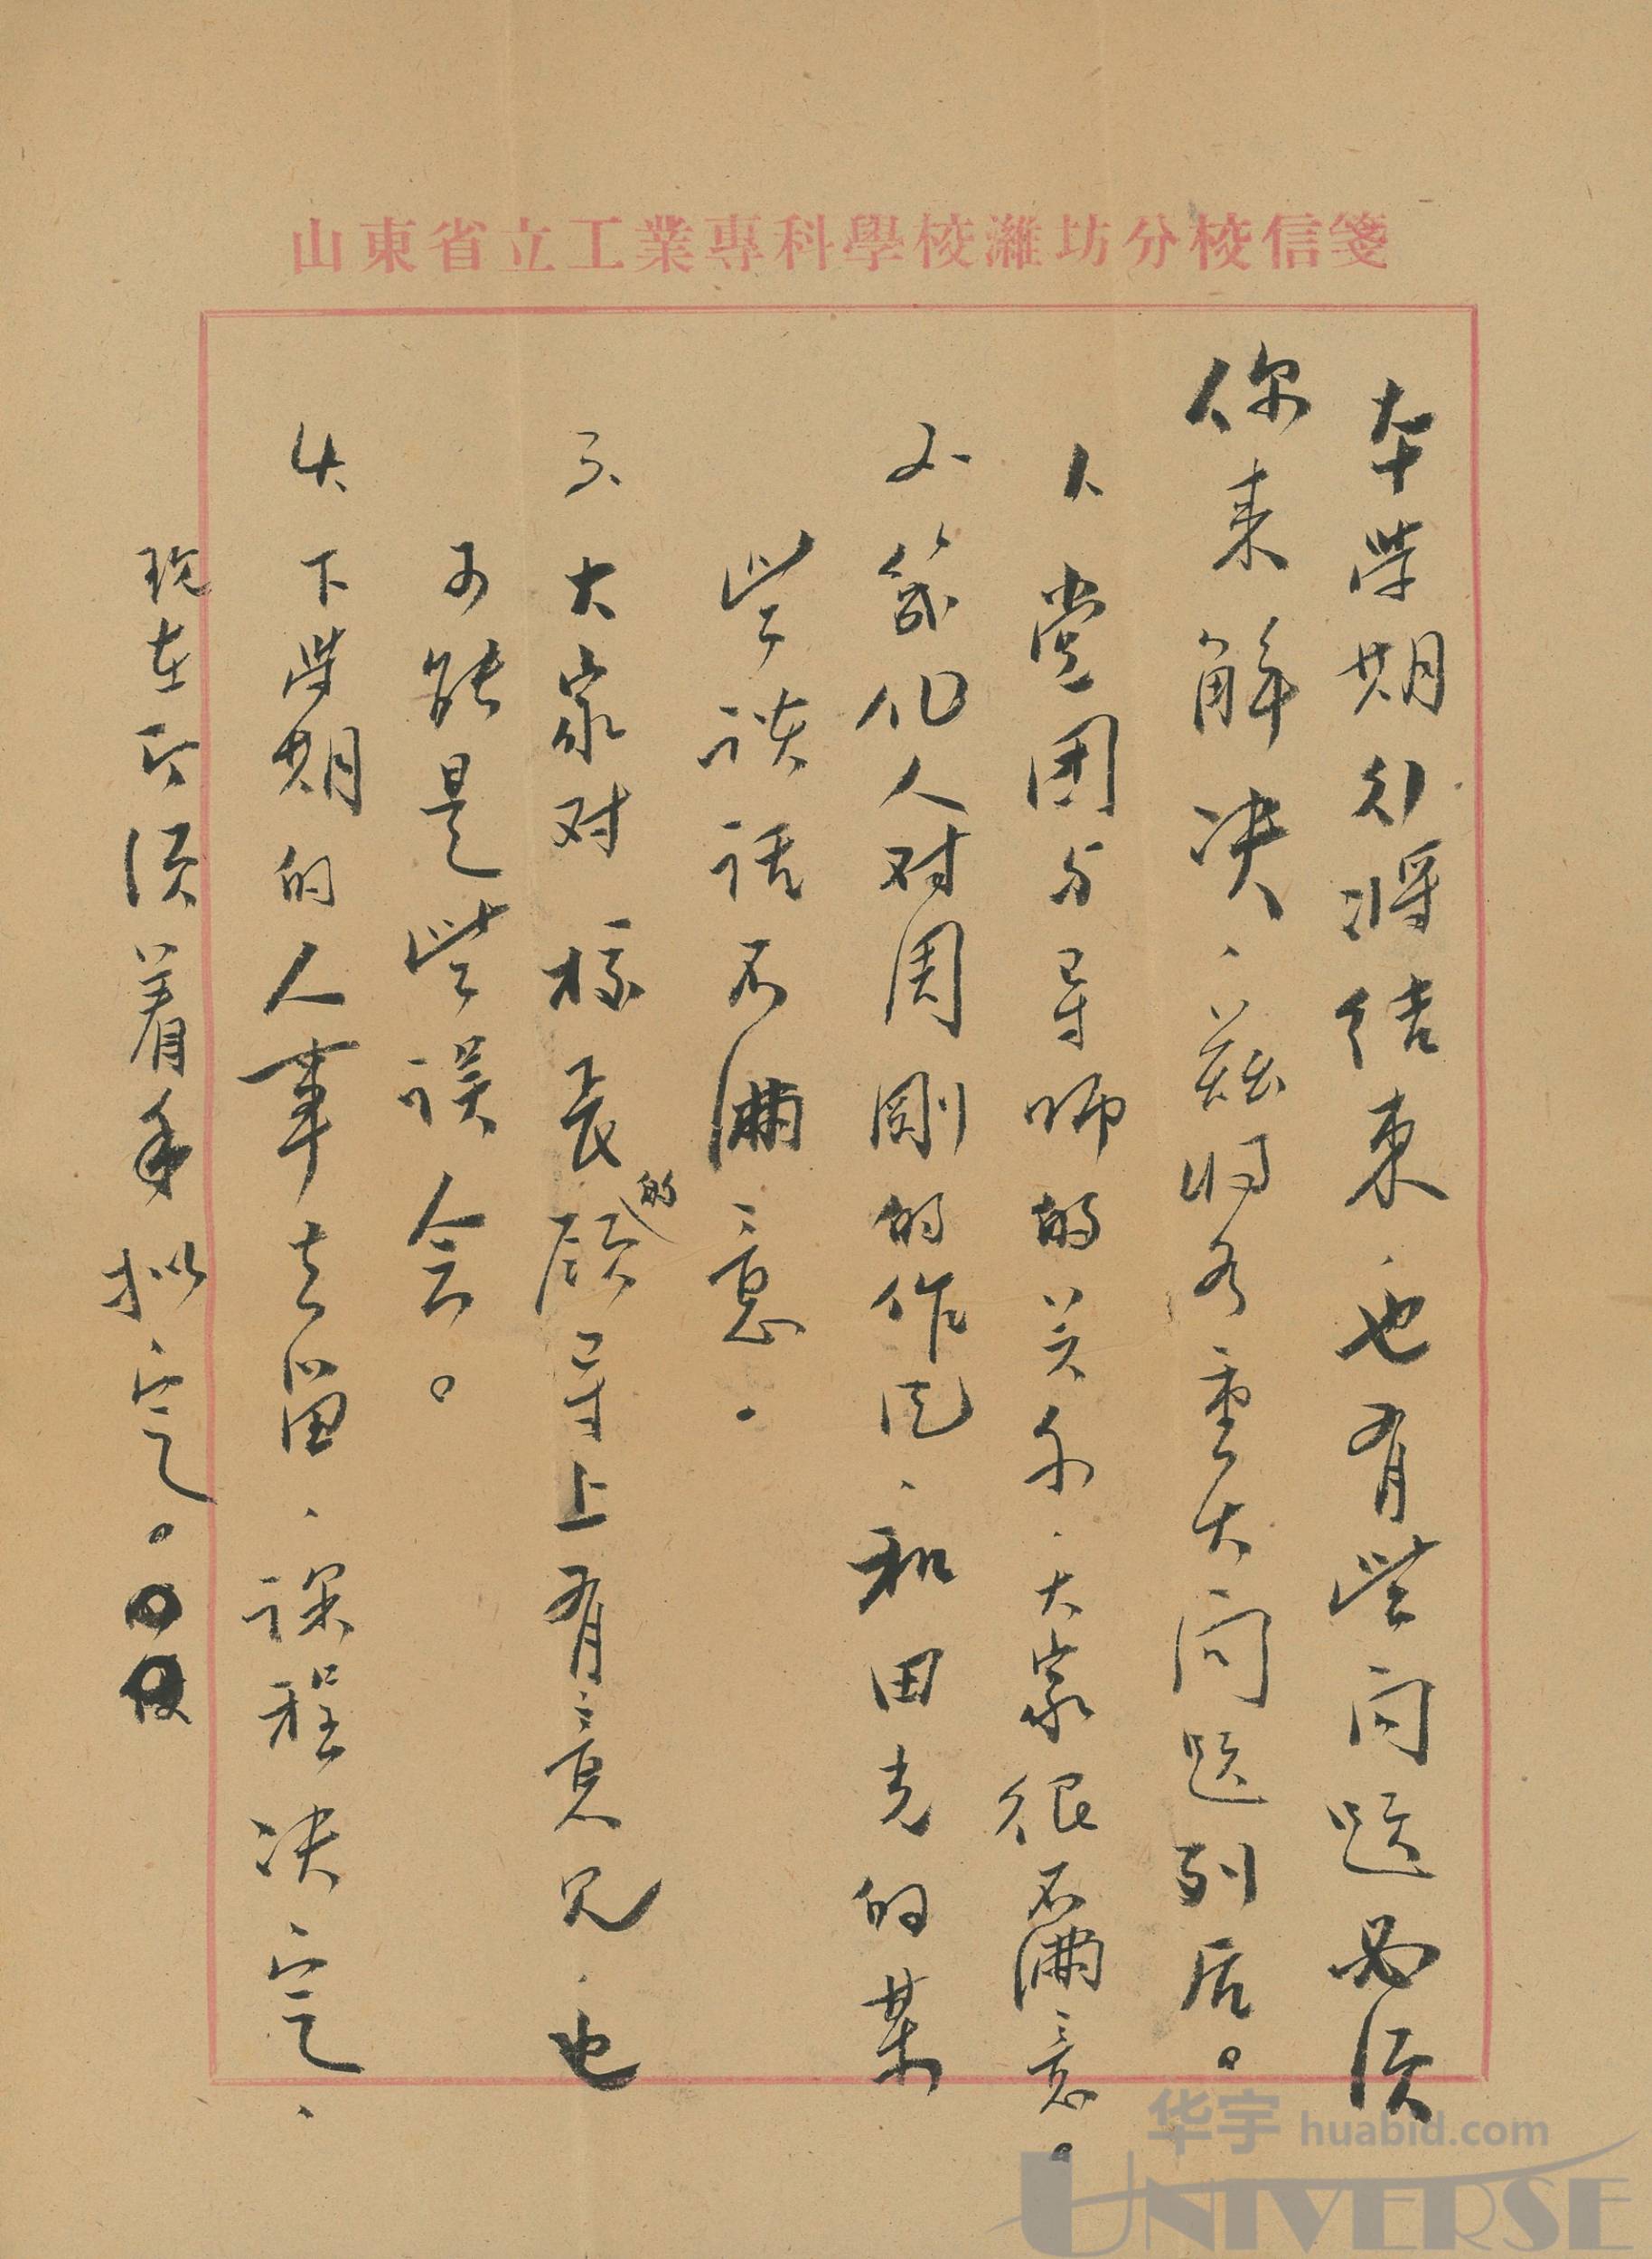 山東省立工業專科學校濰坊分校信箋
本学期行将结束、也有些问题必须
你来解决、兹将各重大问题列后。
1、党团与导师的关系、大家很不满意。
2、几化人对周刚的作风、和田克的某
些谈话不满意。
3、大家对校长的领导上有意见、也
可能是些误会。
4、下学期的人事去留、课程决定、
现在即须着手拟定。
华宇 huabid.com
UNIVERSE